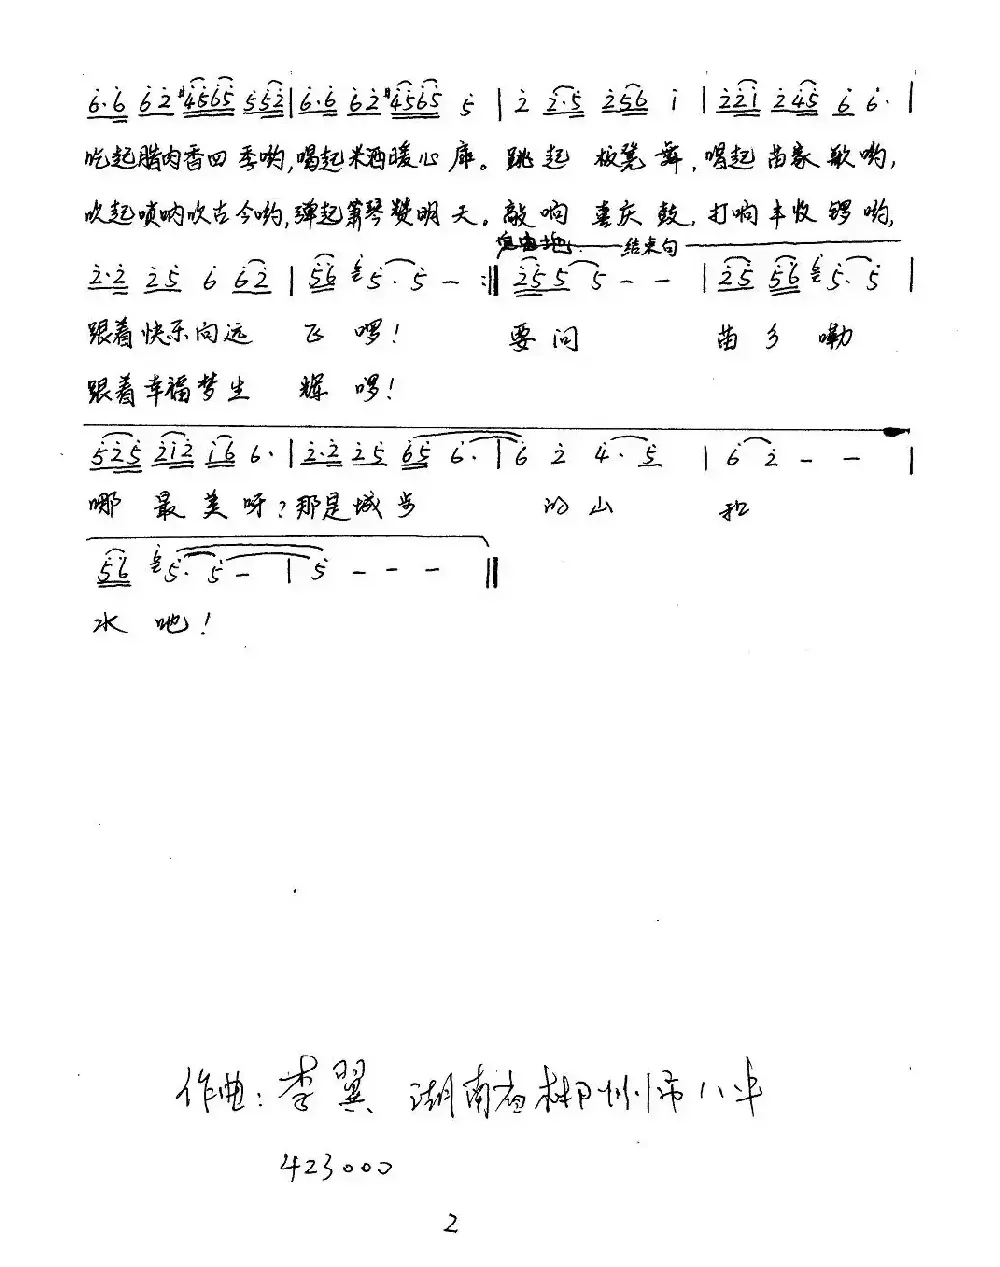 6·6 62 #4565 552 | 6·6 62 #4565 5 | 2 2·5 256 1 | 221 245 6 6· |
吃起腊肉香四季哟,喝起米酒暖心扉。跳起 板凳舞,唱起苗家歌哟,
吹起唢呐吹古今哟,弹起箫琴赞明天。敲响 喜庆鼓,打响丰收锣哟,
自由地 结束句
2·2 25 6 62 | 56 5· 5 — :|| 255 5 — — | 25 56 5· 5 |
跟着快乐向远 飞啰! 要问 苗乡嘞
跟着幸福梦生 辉啰!
525 212 16 6· | 2·2 25 65 6· | 6 2 4· 5 | 6 2 — — |
哪 最美呀?那是城步 的山 和
56 5· 5 — | 5 — — — ||
水吔!
作曲:李翼 湖南省郴州市八中
423000
2